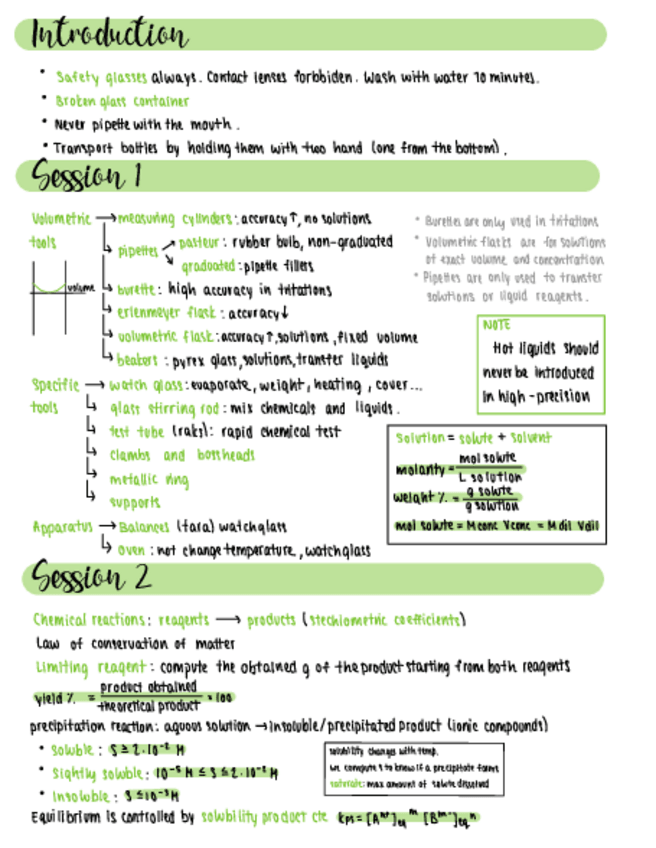 Introduction
• Safety glasses always. Contact lenses forbbiden. Wash with water 10 minutes.
• Broken glass container
• Never pipette with the mouth.
• Transport bottles by holding them with two hand (one from the bottom).
Session 1
Volumetric tools → measuring cylinders: accuracy↑, no solutions
↳ pipettes ↗ pasteur: rubber bulb, non-graduated
↘ graduated: pipette fillers
volume
↳ burette: high accuracy in tritations
↳ erlenmeyer flask: accuracy↓
↳ volumetric flask: accuracy↑, solutions, fixed volume
↳ beakers: pyrex glass, solutions, transfer liquids
* Burettes are only used in tritations
* Volumetric flasks are for solutions
of exact volume and concentration
* Pipettes are only used to transfer
solutions or liquid reagents.
NOTE
Hot liquids should
never be introduced
in high-precision
Specific tools → watch glass: evaporate, weight, heating, cover...
↳ glass stirring rod: mix chemicals and liquids.
↳ test tube (raks): rapid chemical test
↳ clambs and bossheads
↳ metallic ring
↳ supports
Solution = solute + solvent
molarity = mol solute / L solution
weight % = g solute / g solution
mol solute = Mconc Vconc = M dil Vdil
Apparatus → Balances (tara) watchglass
↳ oven: not change temperature, watchglass
Session 2
Chemical reactions: reagents → products (stechiometric coefficients)
Law of conservation of matter
Limiting reagent: compute the obtained g of the product starting from both reagents
yield % = product obtained / theoretical product · 100
precipitation reaction: aquous solution → insoluble/precipitated product (ionic compounds)
• Soluble: S ≥ 2·10⁻² M
• Slightly soluble: 10⁻⁵ M ≤ S ≤ 2·10⁻² M
• Insoluble: S ≤ 10⁻⁵ M
solubility changes with temp.
we compute S to know if a precipitate forms
saturate: max amount of solute dissolved
Equilibrium is controlled by solubility product cte Kps = [Aⁿ⁺]eq ᵐ [Bᵐ⁻]eq ⁿ